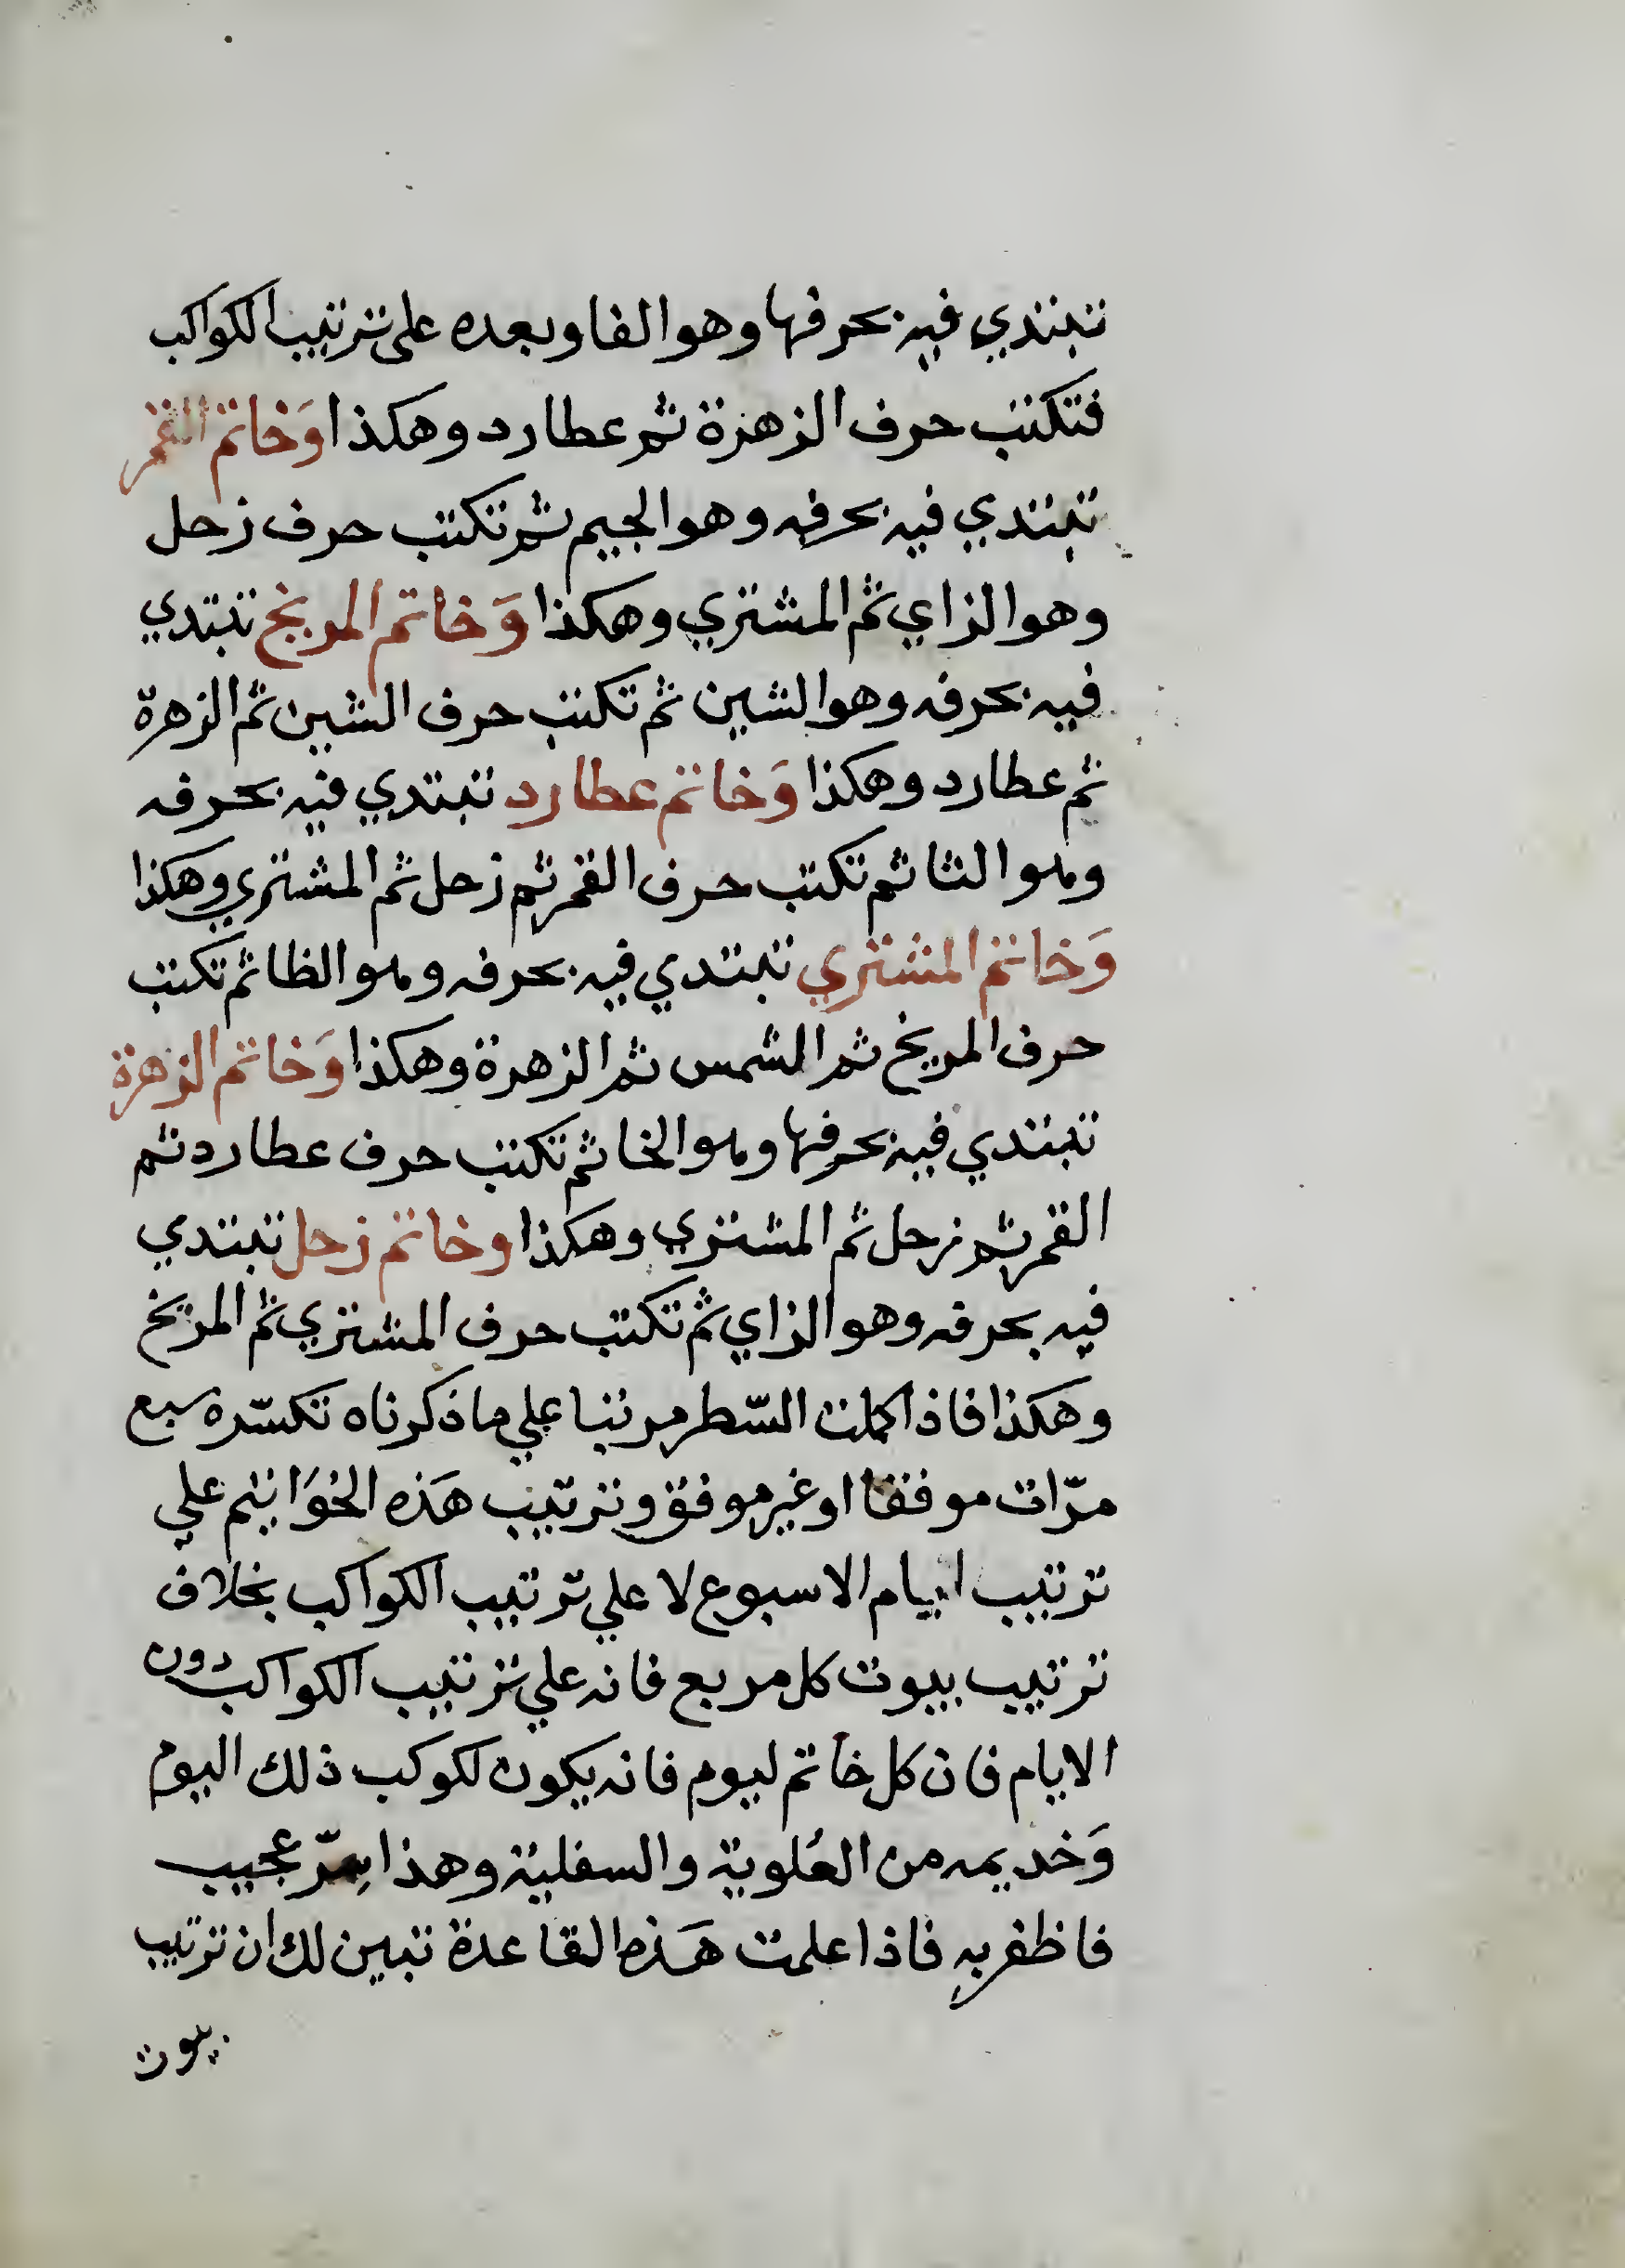 تبتدي فيه بحرفها وهو الفا وبعده على ترتيب الكواكب
فتكتب حرف الزهرة ثم عطارد وهكذا وَخاتم القمر
تبتدي فيه بحرفه وهو الجيم ثم تكتب حرف زحل
وهو الزاي ثم المشتري وهكذا وَخاتم المريخ تبتدي
فيه بحرفه وهو الشين ثم تكتب حرف الشين ثم الزهرة
ثم عطارد وهكذا وَخاتم عطارد تبتدي فيه بحرفه
وهو الثا ثم تكتب حرف القمر ثم زحل ثم المشتري وهكذا
وَخاتم المشتري تبتدي فيه بحرفه وهو الظا ثم تكتب
حرف المريخ ثم الشمس ثم الزهرة وهكذا وَخاتم الزهرة
تبتدي فيه بحرفها وهو الخا ثم تكتب حرف عطارد ثم
القمر ثم زحل ثم المشتري وهكذا وخاتم زحل تبتدي
فيه بحرفه وهو الزاي ثم تكتب حرف المشتري ثم المريخ
وهكذا فاذا كملت السّطر مرتبا علي ما ذكرناه تكسّره سبع
مرّات موفقا او غير موفق وترتيب هَذه الخوَاتيم علي
ترتيب ايام الاسبوع لا علي ترتيب الكواكب بخلاف
ترتيب بيوت كل مربع فانه علي ترتيب الكواكب دون
الايام فان كل خاتم ليوم فانه يكون لكوكب ذلك اليوم
وَخديمه من العُلوية والسفلية وهذا سِرّ عجيب
فاظفر به فاذا علمت هَذه القاعدة تبين لك ان ترتيب
بيوت